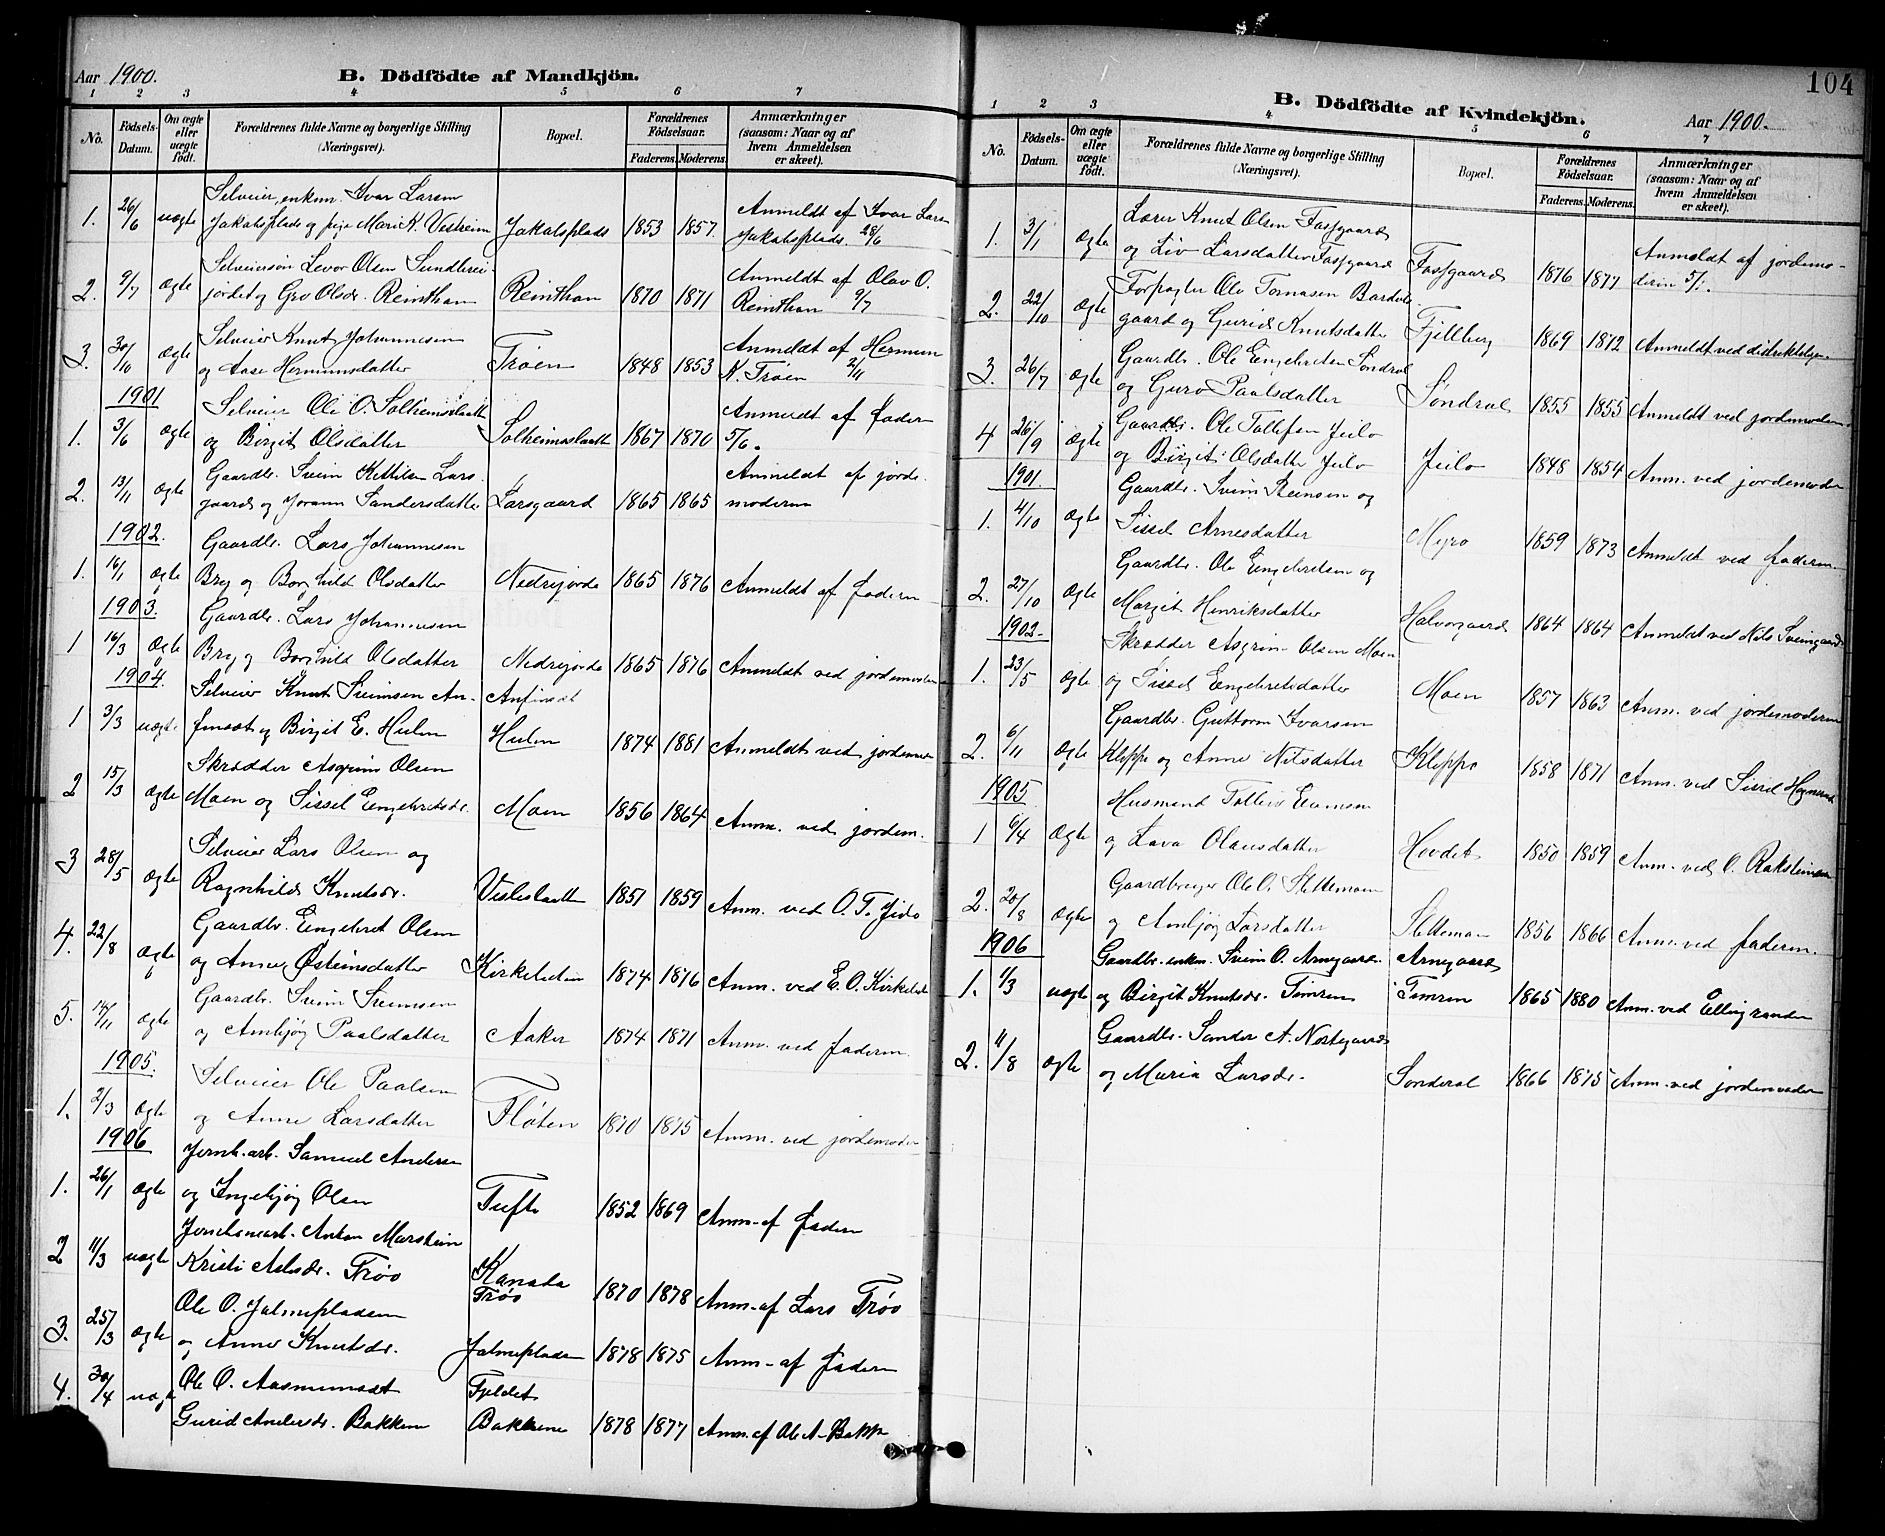 Aar 1900.
B. Dödfödte af Mandkjön.
1 2 3 4 5 6 7
No. Födsels-Datum. Om ægte eller uægte födt. Forældrenes fulde Navne og borgerlige Stilling (Næringsvei). Bopæl. Forældrenes Födselsaar. Faderens. Moderens. Anmærkninger (saasom: Naar og af hvem Anmeldelsen er skeet).
Selveier, enkm. Ivar Larsen Anmeldt af Ivar Lars
1. 26/6 uægte Jakobsplads og pige Mari K. Vestheim Jakobsplads 1853 1857. Jakobsplads 28/6
Selveiersøn Levor Olsen Sundbrei- Anmeldt af Olav O.
2. 9/7 Ægte jordet og Gro Olsdr. Reinthan Reinthan 1870 1871 Reinthan 9/7
Selveier Knut Johannesen Anmeldt af Hermun
3. 30/10 Ægte og Aase Hermunsdatter Trøen 1848 1853 K. Trøen 2/11
1901 Selveier Ole O. Solheimsslaatte Anmeldt af Faderen
1. 3/6 Ægte og Birgit Olsdatter Solheimsslaatte 1867 1870 5/6.
Gaardbr. Svein Kittilsen Lars- Anmeldt af jorde-
2. 13/11 Ægte gaard og Jorann Sandersdatter Larsgaard 1865 1865 moderen
1902. Gaardbr. Lars Johannesen
1. 16/1 Ægte Bry og Borghild Olsdatter Nedrejorde 1865 1876 Anmeldt af Faderen
1903. Gaardbr. Lars Johannesen
1 16/3 Ægte Bry og Borghild Olsdatter Nedrejorde 1865 1876 Anmeldt ved jordemoderen
1904. Selveier Knut Sveinsen An- Anfinset
1 3/3 uægte finset og Birgit E. Hulen Hulen 1874 1881 Anmeldt ved jordemor
Skrædder Asgrim Olsen
2 15/3 Ægte Moen og Sissel Engebretsdr. Moen 1856 1864 Anm. ved jordem.
Selveier Lars Olsen og
3 28/5 Ægte Ragnhild Knutsdr. Vesleslaatten 1851 1859 Anm. ved O. T. Jeilo
Gaardbr. Engebret Olsen
4. 22/8 Ægte og Anne Østeinsdatter Kirkebøen 1874 1876 Anm. ved E. O. Kirkebøe
Gaardbr. Svein Sveinsen
5. 14/11 Ægte og Ambjøg Paalsdatter Aaker 1874 1871 Anm. ved Faderen.
1905. Selveier Ole Paalsen
1. 2/3 Ægte og Anne Larsdatter Fløten 1870 1875 Anm. ved jordemoder
1906 Jernb.arb. Samuel Anders
1. 26/1 Ægte og Ingebjøg Olsen Tufte 1852 1869 Anm. af Faderen
Jernbanearb. Anton Marsheim
2 11/3 uægte Kristi Aslesdr. Trøo Kanada Trøo 1870 1878 Anm. af Lars Trøo
Ole O. Jalmepladsen
3. 25/3 Ægte og Anne Knutsdr. Jalmepladsen 1878 1875 Anm. af Faderen
Ole O. Aasmunset Fjeldet
4. 30/4 uægte Gurid Andersdr. Bakken Bakkene 1878 1877 Anm. af Ole A. Bakk
104
B. Dödfödte af Kvindekjön.
Aar 1900.
1 2 3 4 5 6 7
No. Födsels-Datum. Om ægte eller uægte födt. Forældrenes fulde Navne og borgerlige Stilling (Næringsvei). Bopæl. Forældrenes Födselsaar. Faderens. Moderens. Anmærkninger (saasom: Naar og af hvem Anmeldelsen er skeet).
Lærer Knut Olsen Fossgaard Anmeldt af jordemo-
1. 3/1 Ægte og Liv Larsdatter Fossgaard Fossgaard 1876 1877 deren 5/1.
Forpagter Ole Tomasen Bardvs-
2. 22/10 Ægte gaard og Gurid Knutsdatter Fjellberg 1869 1872 Anmeldt ved
Gaardbr. Ole Engebretsen Söndrol
3. 26/7 Ægte og Guro Paalsdatter Söndrol 1855 1855 Anmeldt ved jordemoderen
Gaardbr. Ole Tollefsen Jeilo
4 26/9 Ægte og Birgit Olsdatter Jeilo Jeilo 1848 1854 Anm. ved jordemoder
1901 Gaardbr. Svein Reinsen og
1. 4/10 Ægte Sissel Arnesdatter Myro 1859 1873 Anmeldt ved Faderen.
Gaardbr. Ole Engebretsen og
2. 27/10 Ægte Margit Henriksdatter Halvorgaard 1864 1864 Anmeldt ved Nils Sveingaard
1902. Skrædder Asgrim Olsen Moen
1. 23/5 Ægte og Sissel Engebretsdatter Moen 1857 1863 Anm. ved jordemoderen
Gaardbr. Guttorm Ivarsen
2. 6/11 Ægte Kleppe og Anne Nilsdatter Kleppe 1858 1871 Anm. ved Sissel
1905 Husmand Tollev Evensen
1 6/4 Ægte og Lava Olausdatter Hovdet 1850 1859 Anm. ved O. Raksteinen
Gaardbruger Ole O. Slettemoen
2. 20/8 Ægte og Ambjøg Larsdatter Slettemoen 1856 1866 Anm. ved Faderen.
1906 Gaardbr. enkm. Svein O. Arnegaard. Arnegaard
1. 1/3 uægte og Birgit Knutsdr. Timren Timren 1865 1880 Anm. ved Elling
Gaardbr. Sander A. Nestegaard
2. 11/8 Ægte og Maria Larsdr. Sönderal 1866 1875 Anm. ved jordemoder